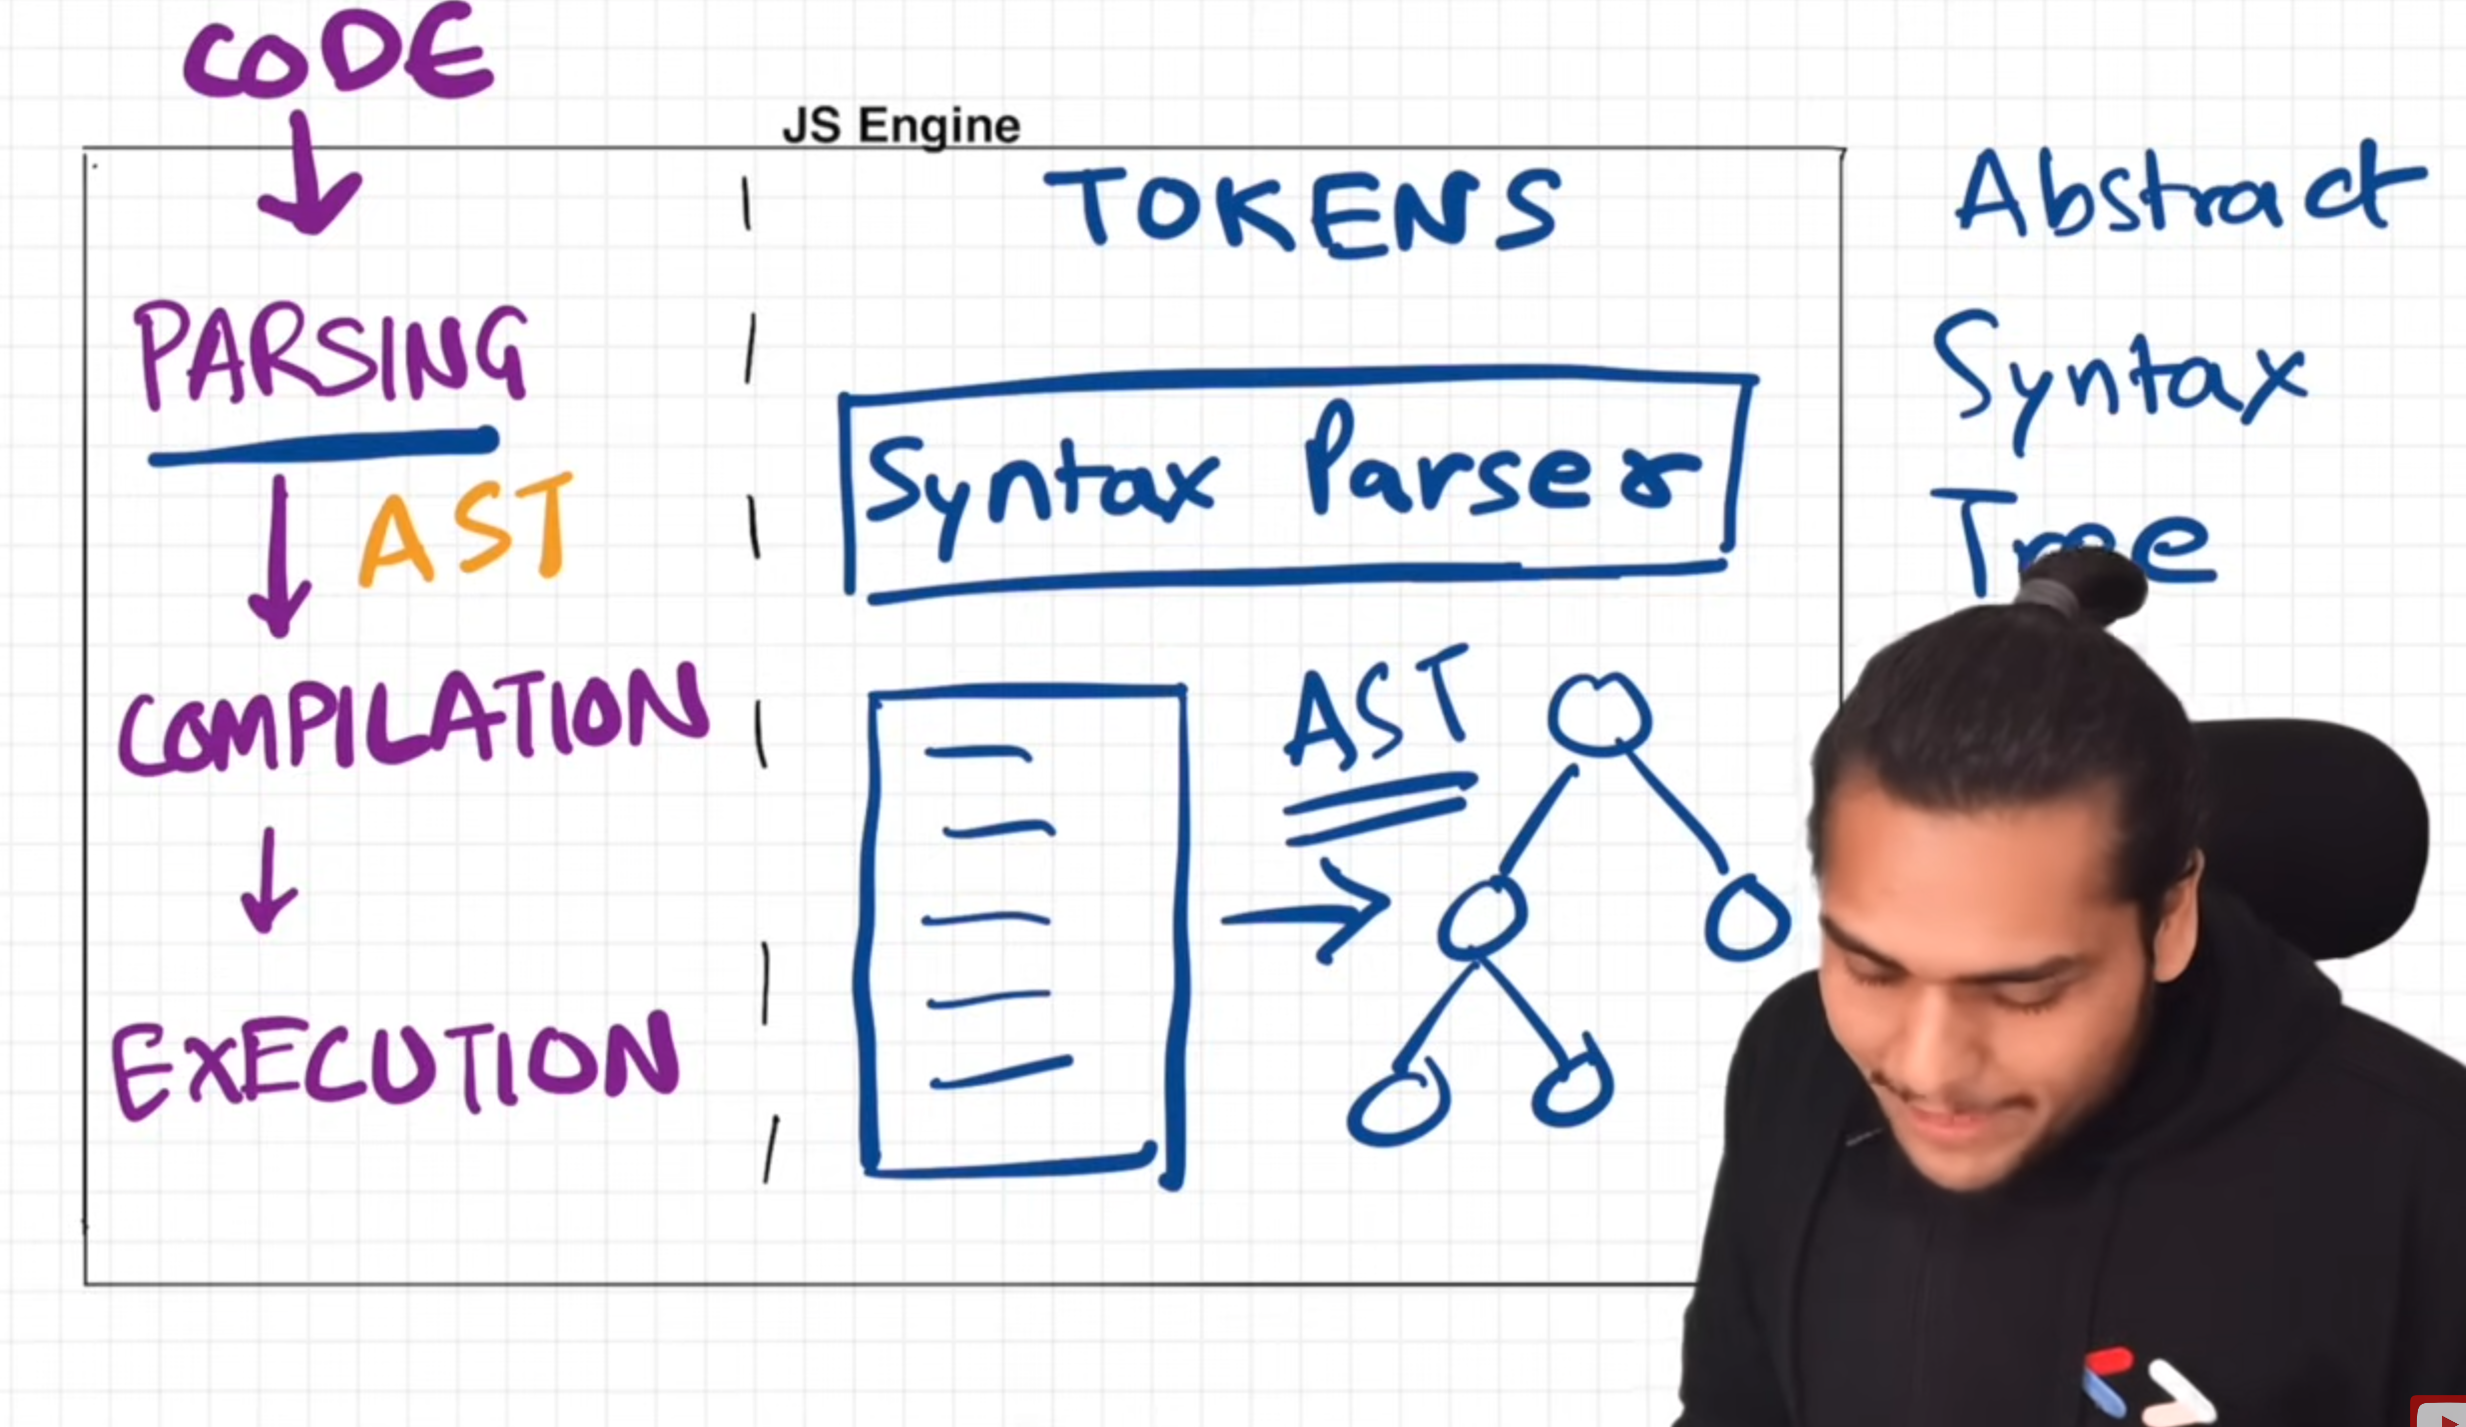 CODE
JS Engine
PARSING
AST
COMPILATION
EXECUTION
TOKENS
Syntax Parser
AST
Abstract
Syntax
Tree